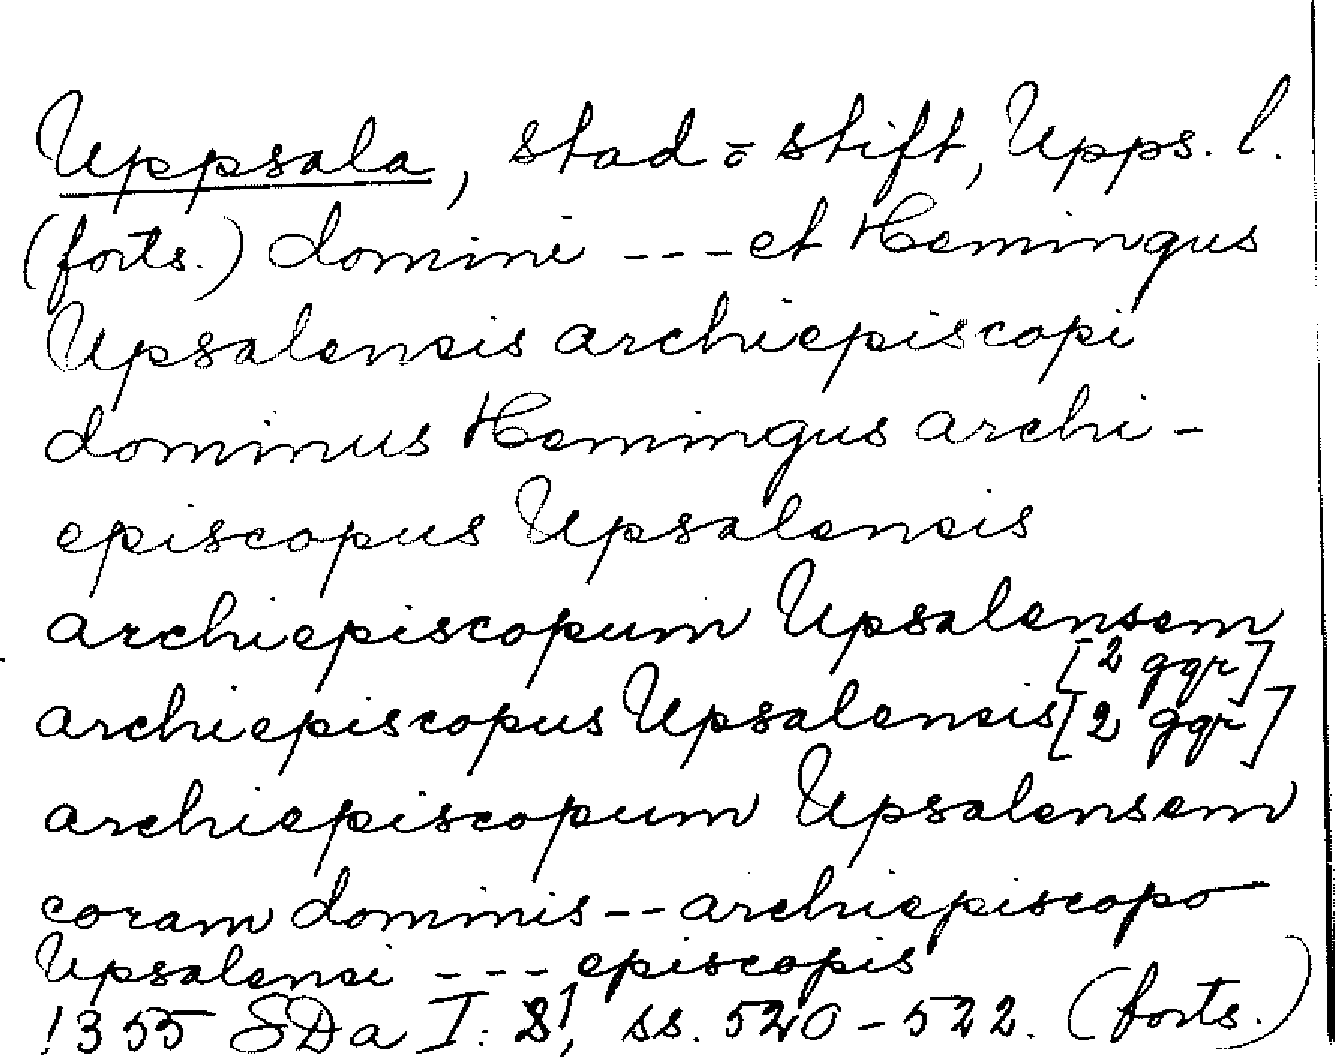 Uppsala, stad o stift, Upps. l.
(forts.) domini --- et Hemingus
Upsalensis archiepiscopi
dominus Hemingus archi-
episcopus Upsalensis
archiepiscopum Upsalensem
[2 ggr]
archiepiscopus Upsalensis [2 ggr]
archiepiscopum Upsalensem
coram dominis -- archiepiscopo
Upsalensi --- episcopis
1355 SDa I: ss. 520-522. (forts.)